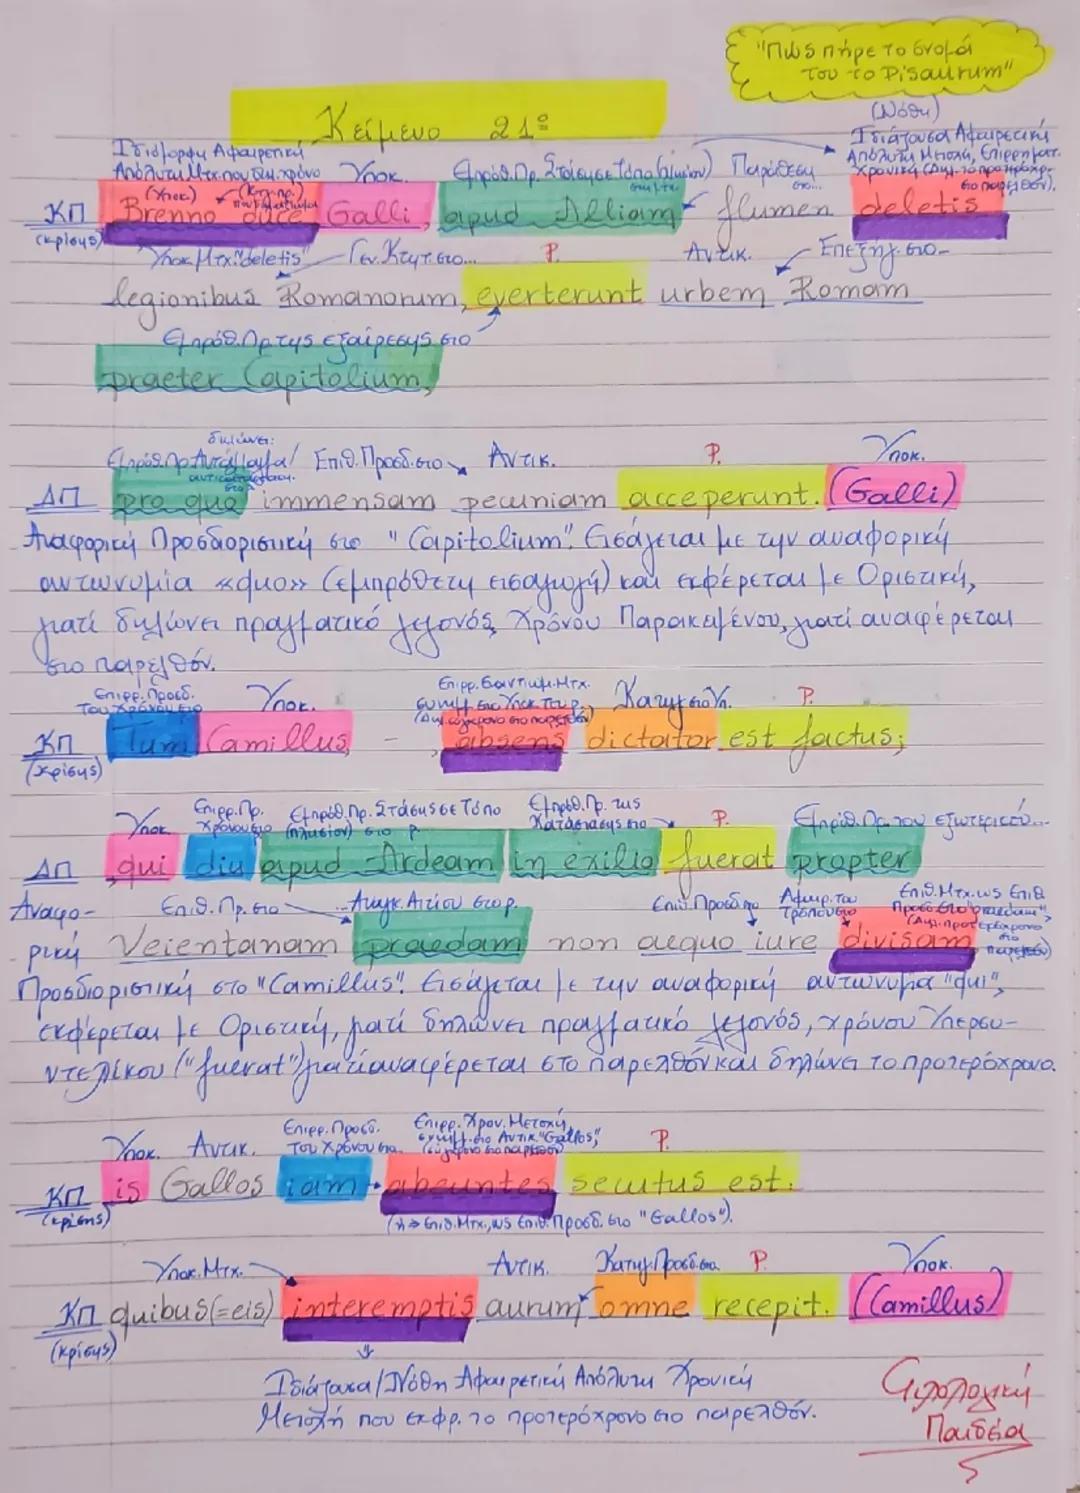 "Πώς πήρε το όνομά
του το Pisaurum"
Κείμενο 21º
(Νόθη)
Ιδιόμορφη Αφαιρετική
Απόλυτη Μτχ. που δηλ. χρόνο
Υποκ.
Εμπρόθ. Πρ. Στάσης σε Τόπο (πλησίον)
Παράθεση στο...
Ιδιάζουσα Αφαιρετική
Απόλυτη Μετοχή, Επιρρηματ.
Χρονική (Δηλ. το προτερόχρ.
στο παρελθόν).
(Υποκ)
ΚΠ Brenno duce Galli, apud Alliam flumen deletis
(κρίσης)
Υποκ. Μτχ. "deletis" Γεν. Κτητ. στο... Ρ. Αντικ. Επεξήγ. στο
legionibus Romanorum, everterunt urbem Romam
Εμπρόθ. Πρ. της εξαίρεσης στο
praeter Capitolium,
δηλώνει:
Επιθ. Προσδ. στο Αντικ. Ρ. Υποκ.
ΔΠ pro quo immensam pecuniam acceperunt. (Galli)
Αναφορική Προσδιοριστική στο "Capitolium". Εισάγεται με την αναφορική
αντωνυμία «quo» (εμπρόθετη εισαγωγή) και εκφέρεται με Οριστική,
γιατί δηλώνει πραγματικό γεγονός, Χρόνου Παρακειμένου, γιατί αναφέρεται
στο παρελθόν.
Επιρρ. Προσδ.
Του Χρόνου στο
Υποκ.
Κατηγ στο Υπ. Ρ.
ΚΠ Tum Camillus, - , absens dictator est factus;
(κρίσης)
Υποκ
Επιρρ. Πρ.
Χρόνου στο
Εμπρόθ. Πρ. Στάσης σε Τόπο
(πλησίον) στο ρ.
Εμπρόθ. Πρ. της
Κατάστασης στο
Ρ. Εμπρόθ. Πρ. του εξωτερικού...
ΔΠ qui diu apud Ardeam in exilio fuerat propter
Αναφο- Επιθ. Πρ. στο ...Αναγκ. Αιτίου στο ρ. Επιθ. Προσδ στο
Αφαιρ. του
Τρόπου στο
Επιθ. Μτχ. ως Επιθ.
Προσδ στο "praedam",
ρική Veientanam praedam non aequo iure divisam
Προσδιοριστική στο "Camillus". Εισάγεται με την αναφορική αντωνυμία "qui",
εκφέρεται με Οριστική, γιατί δηλώνει πραγματικό γεγονός, χρόνου Υπερσυ-
ντελίκου ("fuerat") γιατί αναφέρεται στο παρελθόν και δηλώνει το προτερόχρονο.
Υποκ. Αντικ.
Επιρρ. Προσδ.
Του Χρόνου στο.
Επιρρ. Χρον. Μετοχή,
συνημ. στο Αντικ. "Gallos",
(σύγχρονο στο παρελθόν)
Ρ.
ΚΠ is Gallos iam abeuntes secutus est.
(κρίσης)
(ή → Επιθ. Μτχ., ως Επιθ. Προσδ. στο "Gallos").
Υποκ. Μτχ. Αντικ. Κατηγ. Προσδ. στο Ρ. Υποκ.
ΚΠ quibus (=eis) interemptis aurum omne recepit. (Camillus)
(κρίσης)
Ιδιάζουσα/Νόθη Αφαιρετική Απόλυτη Χρονική
Μετοχή που εκφρ. το προτερόχρονο στο παρελθόν.
Φιλολογική
Παιδεία